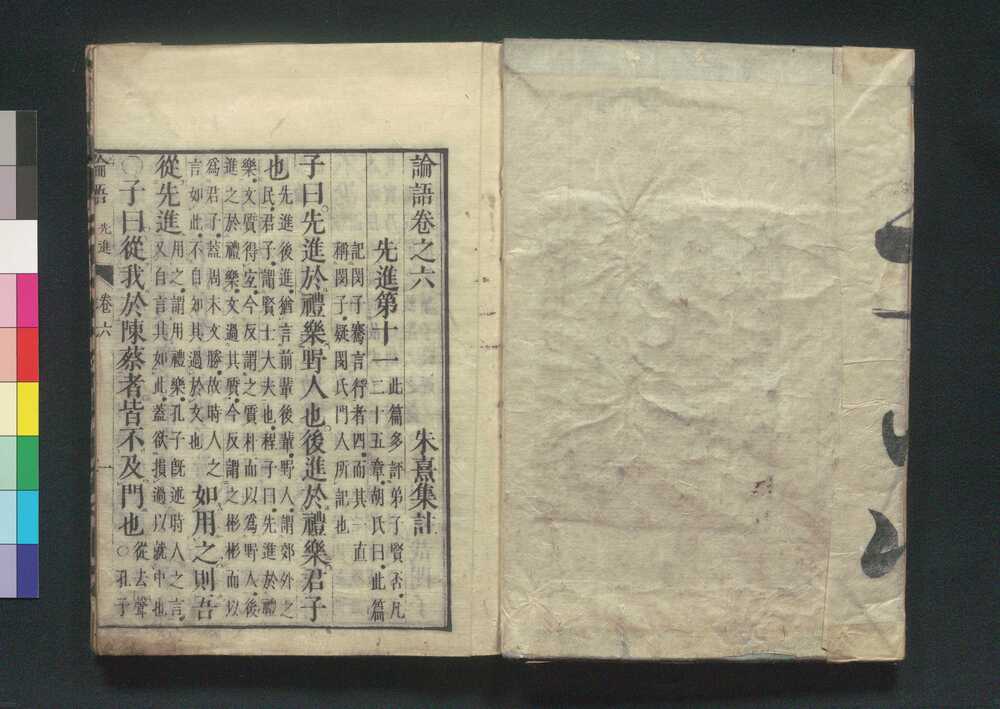 論語卷之六
朱熹集註
先進第十一
此篇多評弟子賢否凡二十五章胡氏曰此篇
記閔子騫言行者四而其一直稱閔子疑閔氏門人所記也
子曰先進於禮樂野人也後進於禮樂君子
也
先進後進猶言前輩後輩野人謂郊外之
民君子謂賢士大夫也程子曰先進於禮
樂文質得宜今反謂之質朴而以爲野人後
進之於禮樂文過其質今反謂之彬彬而以
爲君子蓋周末文勝故時人之
言如此不自知其過於文也
如用之則吾
從先進
用之謂用禮樂孔子旣述時人之言
又自言其如此蓋欲損過以就中也
○子曰從我於陳蔡者皆不及門也
從去聲
○孔子
論語
先進
卷六
一